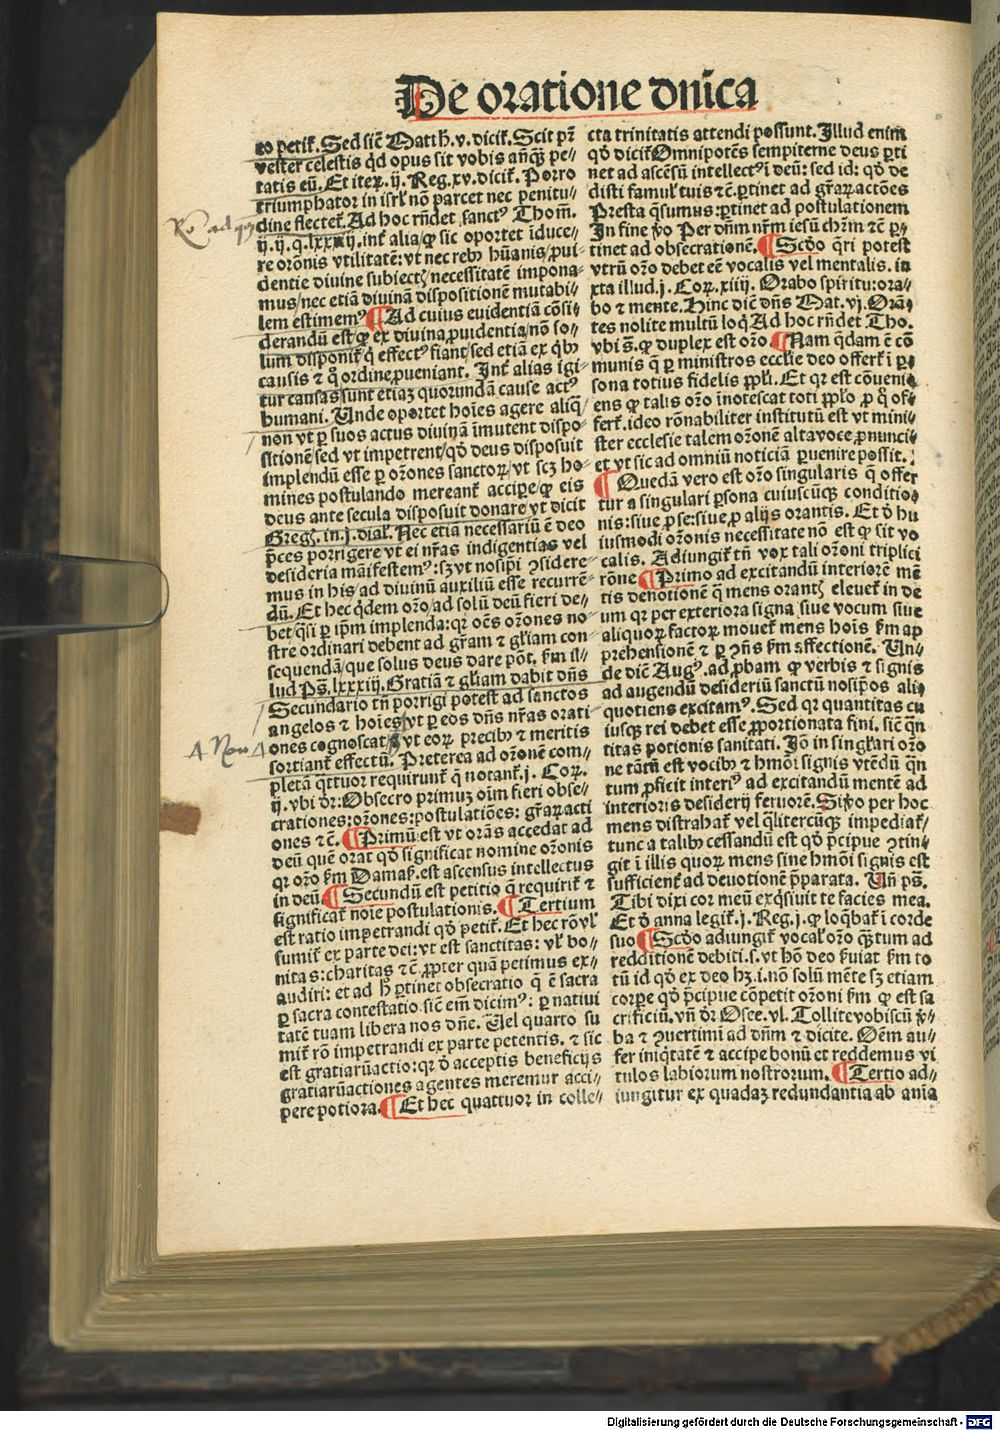 De oratione dnīca
to petiť. Sed sic̄ Matth. v. diciť. Scit pr̄
vester celestis qd̄ opus sit vobis anq̄ꝫ pe⸗
tatis eū. Et iteꝝ. ij. Reg. xv. diciť. Porro
triumphator in isrl̄ nō parcet nec penitu⸗
dine flecteť. Ad hoc rn̄det sanctꝰ Thom̄.
ij. ij. q. lxxxiij. int̄ alia/ꝙ sic oportet īduce⸗
re orōnis vtilitatē: vt nec rebꝰ hūanis/ꝓui⸗
dentie diuine subiectꝭ necessitatē impona⸗
mus/nec etiā diuinā dispositionē mutabi⸗
lem estimemꝰ ¶ Ad cuius euidentiā cōsi⸗
derandū est/ꝙ ex diuina ꝓuidentia/nō so⸗
lum disponiť q̄ effectꝰ fiant/sed etiā ex qͥbꝰ
causis et q̊ ordine ꝓueniant. Int̄ alias igi⸗
tur causas sunt etiaꝫ quorundā cause actꝰ
humani. Unde oportet hoīes agere aliq̄/
non vt ꝑ suos actus diuinā īmutent dispo⸗
sitionē/sed vt impetrent/qd̓ deus disposuit
implendū esse ꝑ or̄ones sanctoꝝ/vt scꝫ ho⸗
mines postulando mereanť accipe/ꝙ eis
deus ante secula disposuit donare/vt dicit
Greg. in. j. dial̓. Nec etia necessariū ē deo
p̄ces porrigere vt ei nr̄as indigentias vel
desideria māifestemꝰ: sꝫ vt nosip̄i ꝯsidere⸗
mus in his/ad diuinū auxiliū esse recurrē⸗
dū. Et hec qͥdem or̄o/ad solū deū fieri de⸗
bet/q̄si ꝑ ip̄m implenda: qꝛ oēs or̄ones no⸗
stre ordinari debent ad gr̄am ⁊ gl̓iam con⸗
sequendā/que solus deus dare pōt. ẜm il⸗
lud Ps̄. lxxxiij. Gratiā ⁊ gl̓iam dabit dn̄s
Secundario tn̄ porrigi potest ad sanctos
angelos ⁊ hoīes/vt ꝑ eos dn̄s nr̄as orati⸗
ones cognoscat/⁊ vt eoꝝ precibꝰ ⁊ meritis
sortianť effectū. Preterea ad or̄onē com⸗
pletā q̄ttuor requirunť q̄ notanť. j. Coꝝ.
ij. vbi dr̄: Obsecro primuꝫ oīm fieri obse⸗
crationes: or̄ones: postulatiōes: gr̄aꝝ acti
ones ⁊c̄. ¶ Primū est vt orās accedat ad
deū quē orat qd̓ significat nomine or̄onis
qꝛ or̄o ẜm Damaſ. est ascensus intellectus
in deū. ¶ Secundū est petitio q̄ requiriť ⁊
significať noīe postulationis. ¶ Tertium
est ratio impetrandi qd̓ petiť. Et hec rōvl̓
sumiť ex parte dei: vt est sanctitas: vl̓ bo⸗
nitas: charitas ⁊c̄. ꝓpter quā petimus ex⸗
audiri: et ad h̓ ꝑtinet obsecratio q̄ ē sacra
ꝑ sacra contestatio sic̄ em̄ dicimꝰ: ꝑ natiui
tatē tuam libera nos dn̄e. Uel quarto su
miť rō impetrandi ex parte petentis. ⁊ sic
est gratiarūactio: qꝛ d̓ acceptis beneficijs
gratiarūactiones agentes meremur acci⸗
pere potiora. ¶ Et hec quattuor in colle⸗
cta trinitatis attendi possunt. Illud enim
qd̓ diciť Omnipotēs sempiterne deus ꝑti
net ad ascēsū intellectꝰ ī deū: sed id: qd̓ de
disti famul̓ tuis ⁊c̄. ꝑtinet ad gr̄aꝝactōes
Presta q̄sumus: ꝑtinet ad postulationem
In fine v̓o Per dn̄m nr̄m iesū chr̄m ⁊c̄ ꝑ⸗
tinet ad obsecrationē. ¶ Scd̓o q̄ri potest
vtrū or̄o debet eē vocalis vel mentalis. iu
xta illud. j. Coꝝ. xiiij. Orabo spiritu: ora⸗
bo ⁊ mente. Hinc dic̄ dn̄s Mat. vj. Orā⸗
tes nolite multū loq̄ Ad hoc rn̄det Tho.
vbi s̄. ꝙ duplex est or̄o. ¶ Nam q̄dam ē cō
munis q̄ ꝑ ministros eccl̓ie deo offerť ī ꝑ⸗
sona totius fidelis ppl̓i. Et qꝛ est cōueni⸗
ens ꝙ talis or̄o īnotescat toti ppl̓o ꝓ q̊ of⸗
ferť. ideo rōnabiliter institutū est vt mini⸗
ster ecclesie talem or̄onē alta voce ꝓnunci⸗
et vt sic ad omniū noticiā ꝑuenire possit.
¶ Quedā vero est or̄o singularis q̄ offer
tur a singulari ꝑsona cuiuscūqꝫ conditio⸗
nis: siue ꝓ se: siue ꝓ alijs orantis. Et d̓ hu
iusmodi or̄onis necessitate nō est ꝙ sit vo
calis. Adiungiť tn̄ vox tali or̄oni triplici
rōne ¶ Primo ad excitandū interiorē mē
tis deuotionē q̄ mens orantꝭ eleueť in de
um qꝛ per exteriora signa siue vocum siue
aliquoꝝ factoꝝ moueť mens hoīs ẜm ap
prehensionē ⁊ ꝑ ꝯn̄s ẜm affectionē. Un⸗
de dic̄ Augꝰ. ad ꝓbam ꝙ verbis ⁊ signis
ad augendū desideriū sanctū nosip̄os ali⸗
quotiens excitamꝰ. Sed qꝛ quantitas cu
iusqꝫ rei debet esse ꝓportionata fini. sic̄ q̄n
titas potionis sanitati. Iō in singl̓ari or̄o
ne tātū est vocibꝰ ⁊ hmōi signis vtēdū q̄n
tum ꝓficit interiꝰ ad excitandū mentē ad
interioris desiderij feruorē. Si v̓o per hoc
mens distrahať vel q̄litercūqꝫ impediať/
tunc a talibꝰ cessandū est qd̓ p̄cipue ꝯtin⸗
git ī illis quoꝝ mens sine hmōi signis est
sufficienť ad deuotionē p̄parata. Un̄ ps̄.
Tibi dixi cor meū exq̄siuit te facies mea.
Et d̓ anna legiť. j. Reg. j. ꝙ loq̄bať ī corde
suo ¶ Scd̓o adiungiť vocal̓ or̄o q̄ꝫtum ad
redditionē debiti. s. vt hō deo ẜuiat ẜm to
tū id qd̓ ex deo hꝫ. i. nō solū mēte sꝫ etiam
corpe qd̓ p̄cipue cōpetit or̄oni ẜm ꝙ est sa
crificiū. vn̄ dr̄ Osee. vl. Tollite vobiscū v̓⸗
ba ⁊ ꝯuertimī ad dn̄m ⁊ dicite. Oēm au⸗
fer iniq̄tatē ⁊ accipe bonū et reddemus vi
tulos labiorum nostrorum. ¶ Tertio ad⸗
iungitur ex quadaꝫ redundantia ab anīa
Digitalisierung gefördert durch die Deutsche Forschungsgemeinschaft - DFG